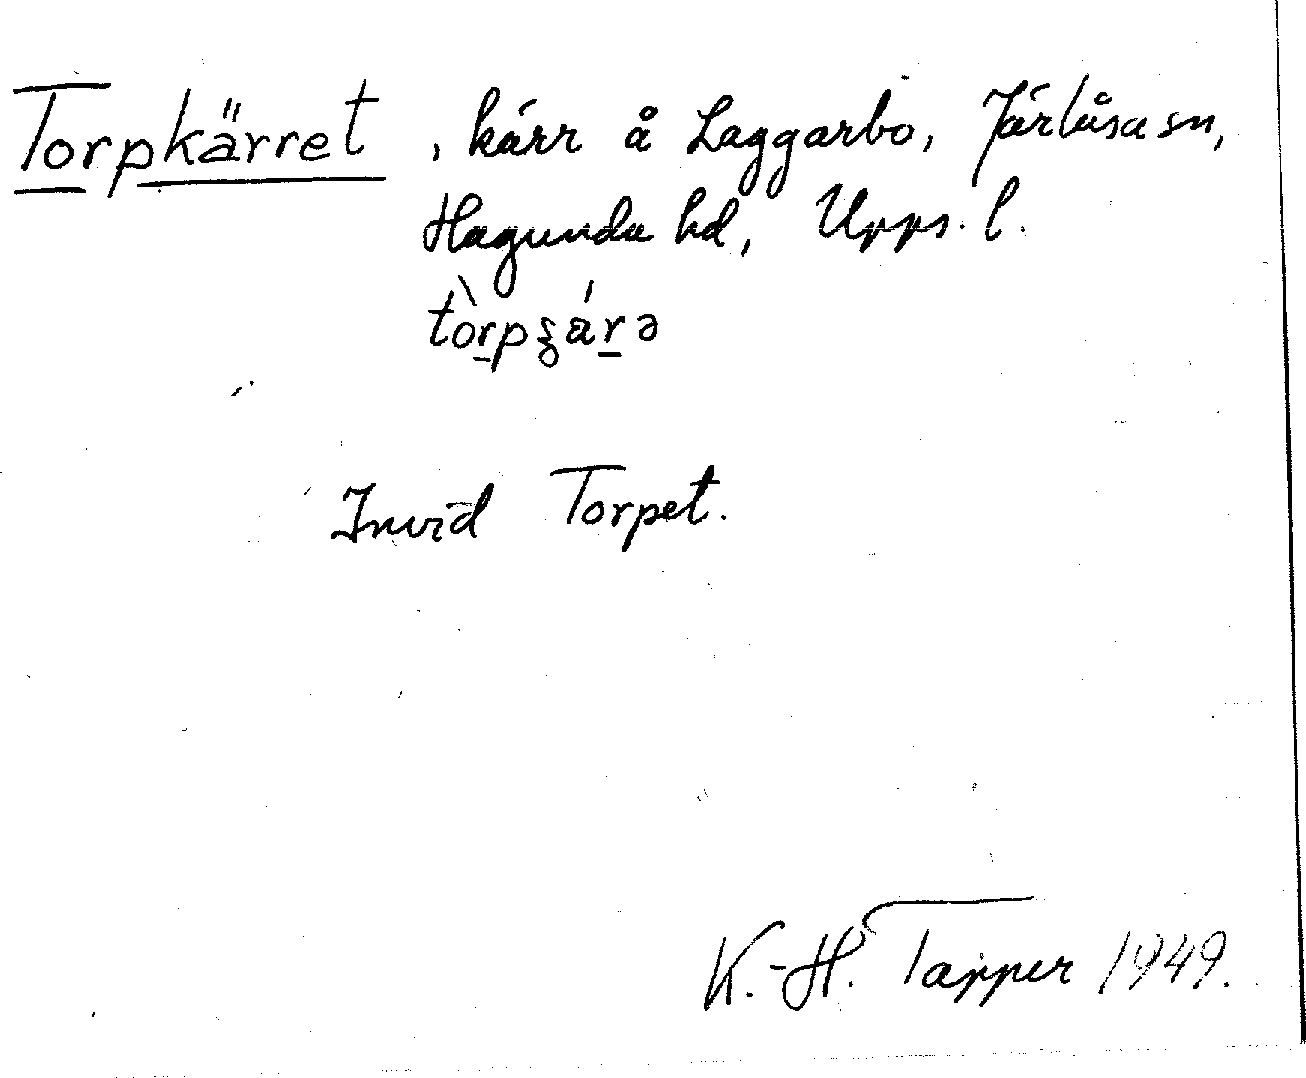 Torpkärret, kärr å Laggarbo, Järlåsa sn,
Hagunda hd, Upps. l.
Invid Torpet.
K.-H. Tapper 1949.